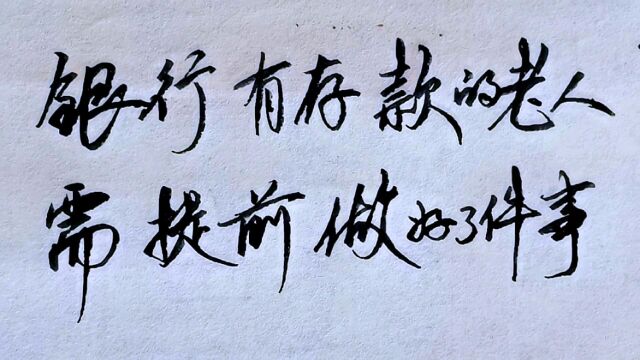 银行有存款的老人
需提前做好3件事